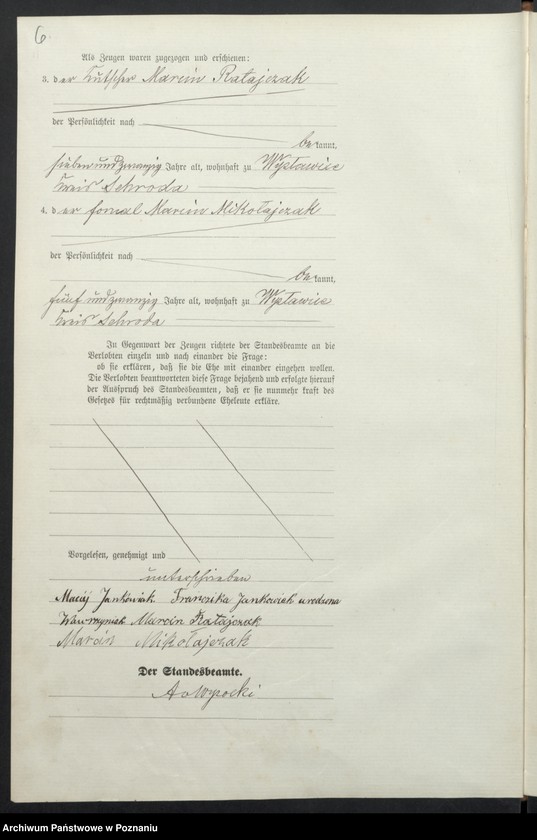 6
Als Zeugen waren zugezogen und erschienen:
3. der Kutscher Marcin Ratajczak
der Persönlichkeit nach
bekannt,
siebenundzwanzig Jahre alt, wohnhaft zu Wysławice
Kreis Schroda
4. der fornal Marcin Mikołajczak
der Persönlichkeit nach
bekannt,
fünfundzwanzig Jahre alt, wohnhaft zu Wysławice
Kreis Schroda
In Gegenwart der Zeugen richtete der Standesbeamte an die
Verlobten einzeln und nach einander die Frage:
ob sie erklären, daß sie die Ehe mit einander eingehen wollen.
Die Verlobten beantworteten diese Frage bejahend und erfolgte hierauf
der Ausspruch des Standesbeamten, daß er sie nunmehr kraft des
Gesetzes für rechtmäßig verbundene Eheleute erkläre.
Vorgelesen, genehmigt und
unterschrieben
Maciej Jankowiak Franciszka Jankowiak urodzona
Wawrzyniak Marcin Ratajczak
Marcin Mikołajczak
Der Standesbeamte.
Archiwum Państwowe w Poznaniu